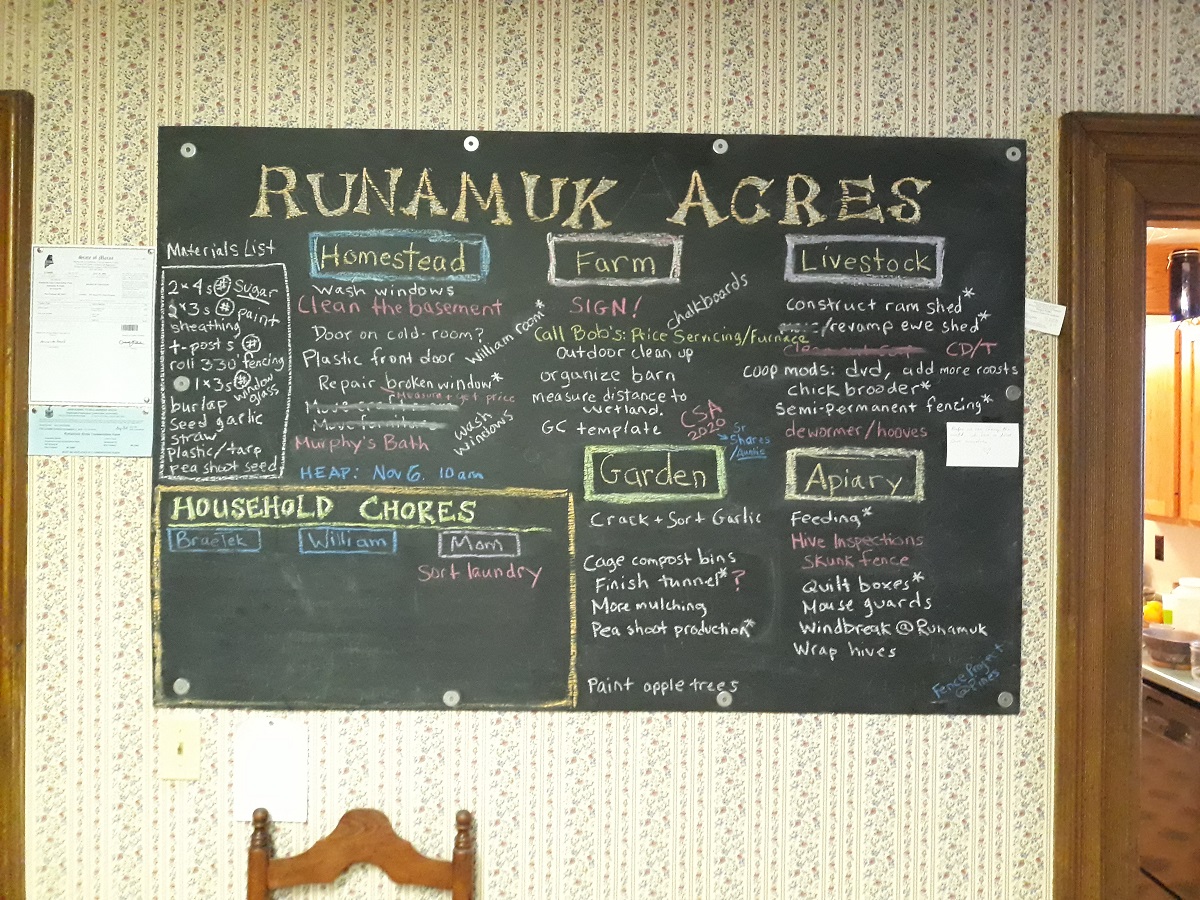 RUNAMUK ACRES
Materials List
2×4s # Sugar
2×3s # paint
sheathing
t-posts #
roll 330' fencing
1×3s # window glass
burlap
seed garlic
straw
plastic/tarp
pea shoot seed
Homestead
wash windows
Clean the basement
Door on cold-room?
Plastic front door
William room*
Repair broken window*
measure + get price
Move furniture
Murphy's Bath
wash windows
HEAP: Nov 6. 10am
Farm
SIGN!
chalkboards
Call Bob's: Price Servicing/Furnace
outdoor clean up
organize barn
measure distance to
wetland.
GC template
CSA
2020
Sr
Shares
/Auntie
Livestock
construct ram shed*
/revamp ewe shed*
CD/T
coop mods: dvd, add more roosts
chick brooder*
Semi-permanent fencing*
dewormer/hooves
Garden
Crack + Sort Garlic
Cage compost bins
Finish tunnel*?
More mulching
Pea shoot production*
Paint apple trees
Apiary
Feeding*
Hive Inspections
Skunk fence
Quilt boxes*
Mouse guards
Windbreak @ Runamuk
Wrap hives
Fence Project
@ Pines
HOUSEHOLD CHORES
Braelek
William
Mom
Sort laundry
State of Maine